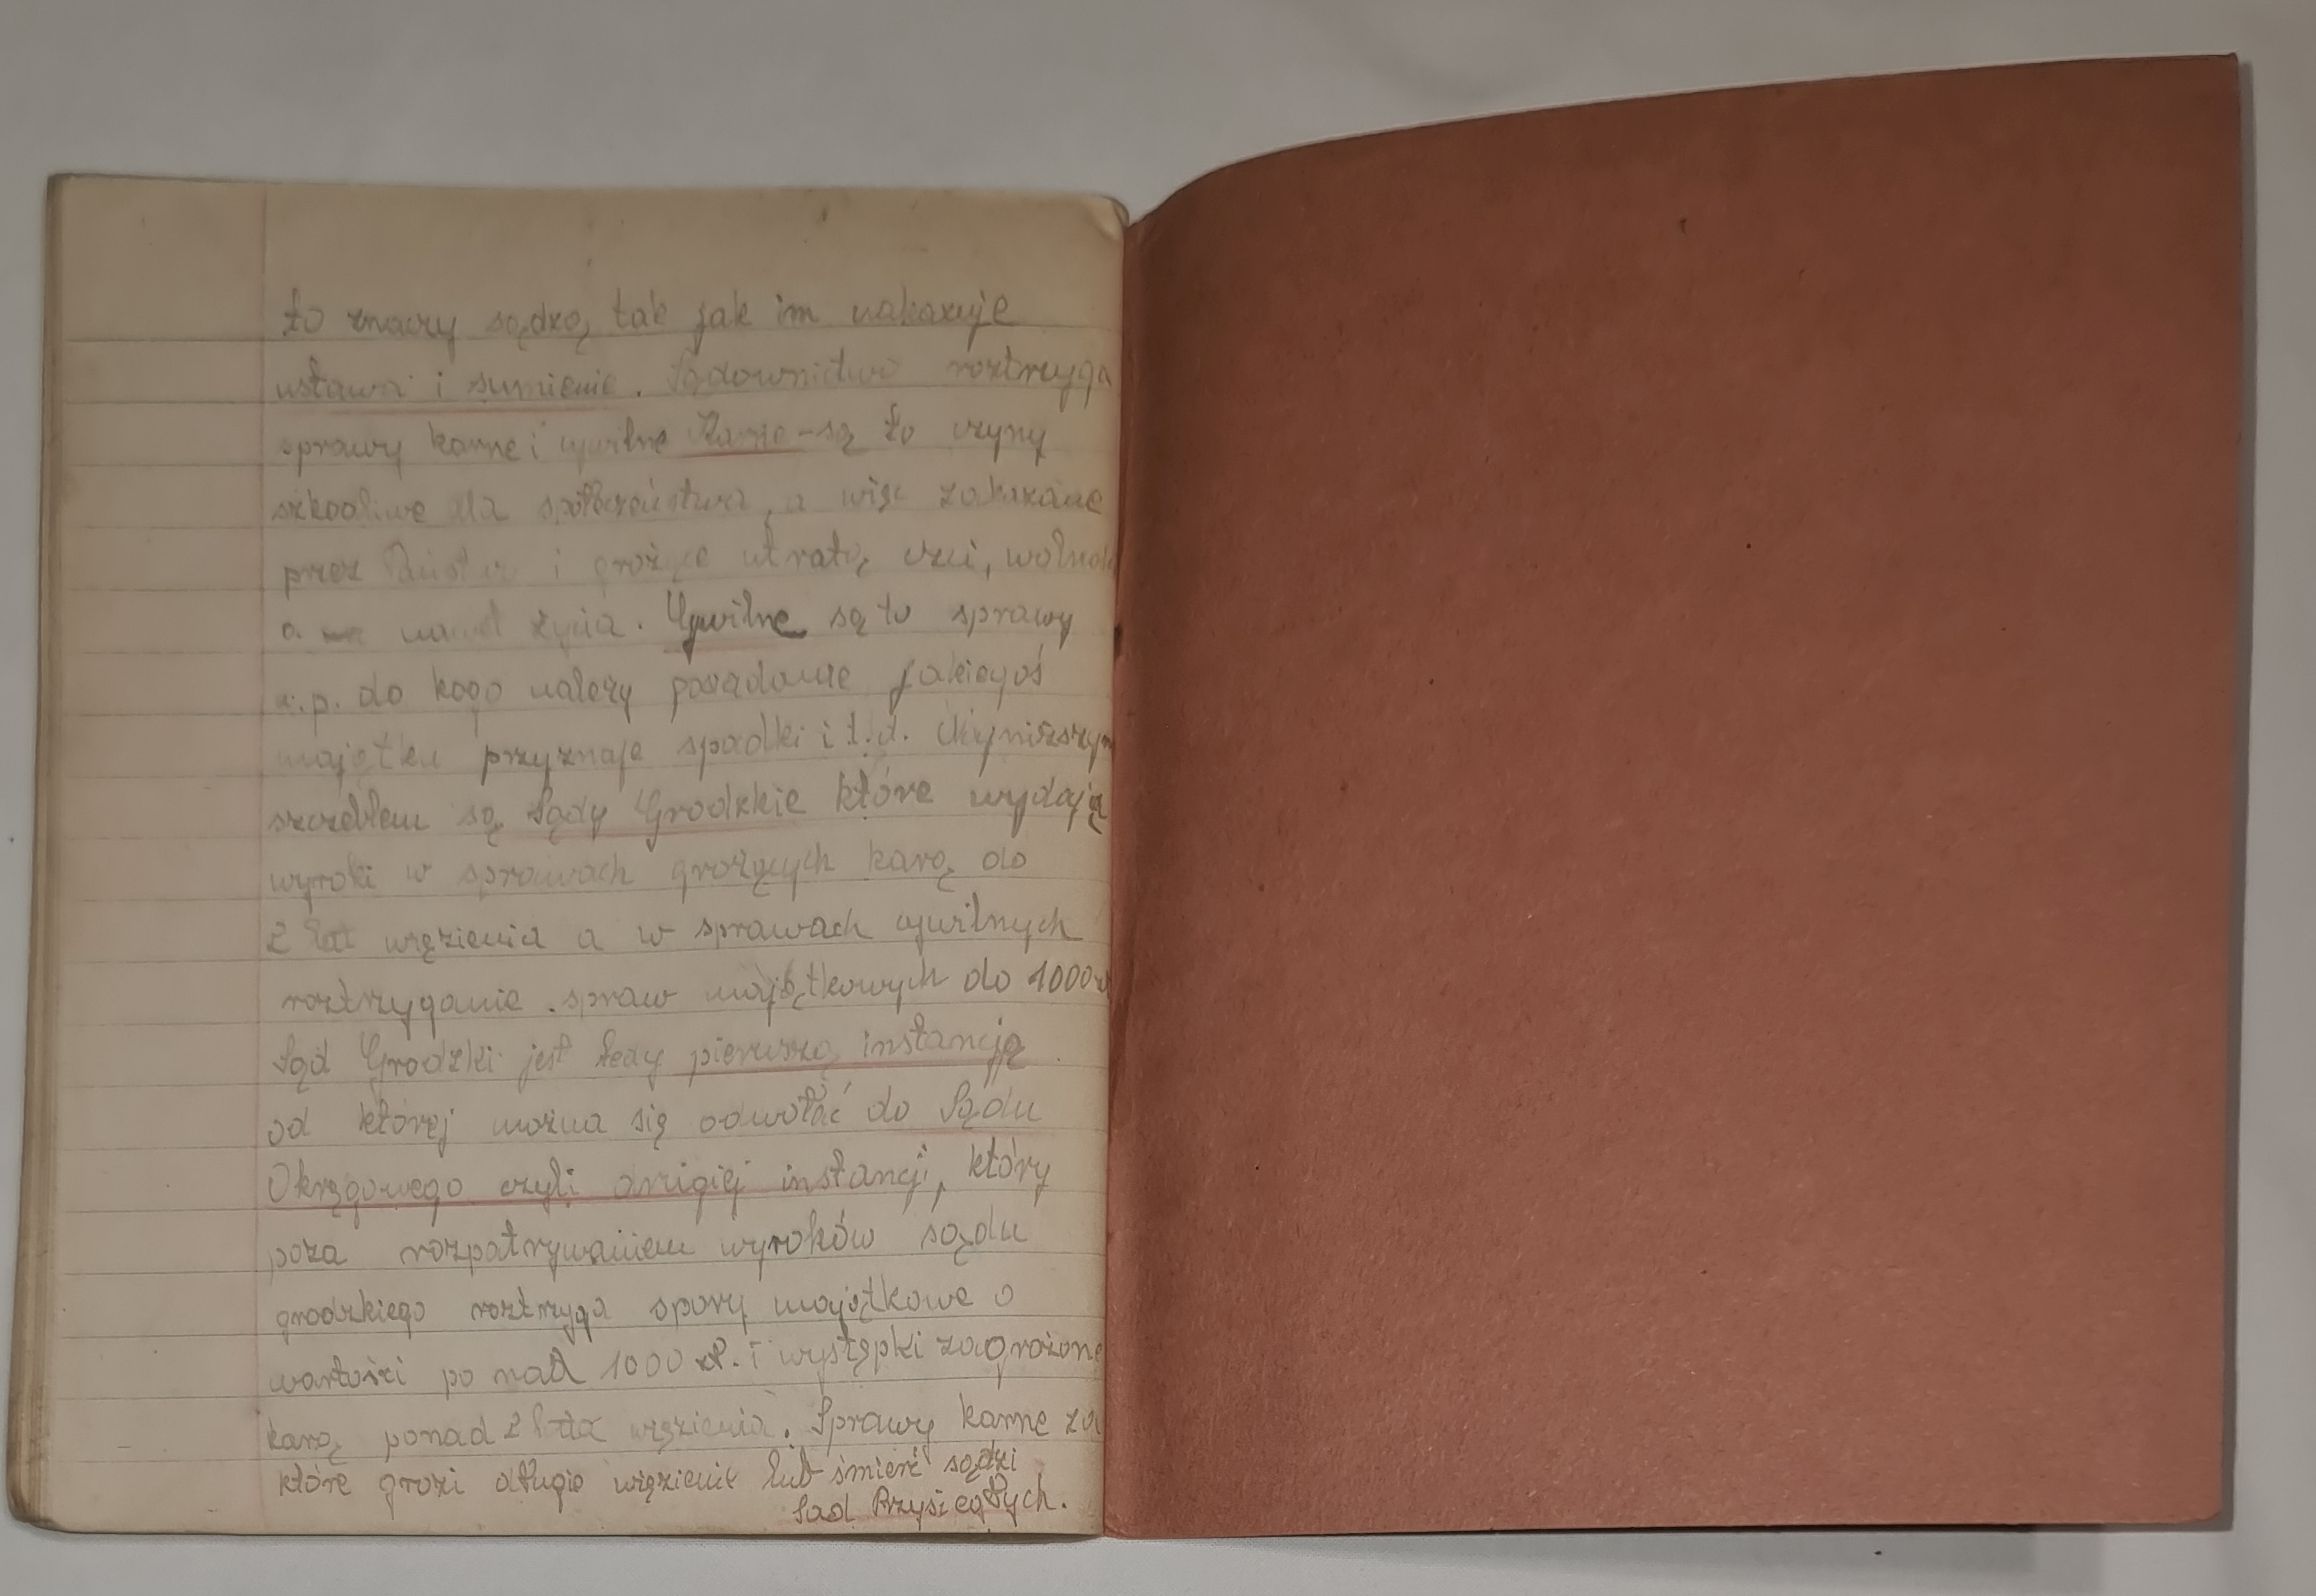 to znaczy sądzą tak jak im nakazuje
ustawa i sumienie. Sądownictwo roztrzyga
sprawy karne i cywilne Karne - są to czyny
szkodliwe dla społeczeństwa, a więc zakazane
przez Państwo i grożące utratą czci, wolności
a nawet życia. Cywilne są to sprawy
n.p. do kogo należy posiadanie jakiegoś
majątku przyznaje spadki i t.d. Najniższym
szczeblem są Sądy Grodzkie które wydają
wyroki w sprawach grożących karą do
2 lat więzienia a w sprawach cywilnych
roztrzyganie spraw majątkowych do 1000 zł
Sąd Grodzki jest tedy pierwszą instancją
od której można się odwołać do Sądu
Okręgowego czyli drugiej instancji, który
poza rozpatrywaniem wyroków sądu
grodzkiego roztrzyga spory majątkowe o
wartości po nad 1000 zł. i występki zagrożone
karą ponad 2 lata więzienia. Sprawy karne za
które grozi długie więzienie lub śmierć sądzi
Sąd Przysięgłych.